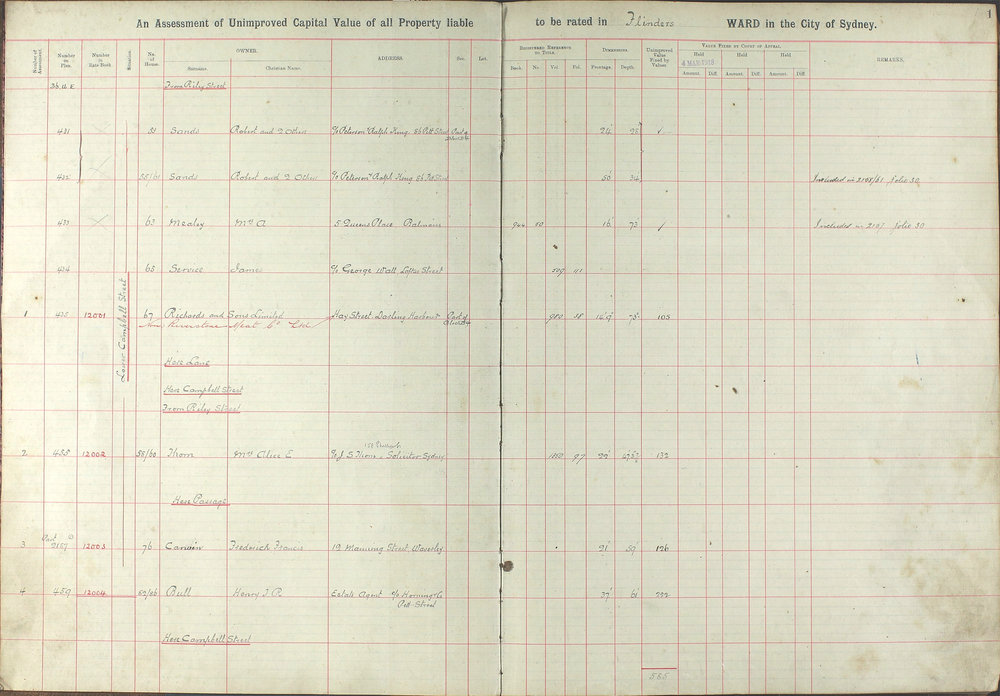 1
An Assessment of Unimproved Capital Value of all Property liable to be rated in Flinders WARD in the City of Sydney.
Number of Assessment. Number on Plan. Number in Rate-Book. Situation. No. of House. OWNER. Surname. Christian Name. ADDRESS. Sec. Lot. Registered Reference to Title. Book. No. Vol. Fol. Dimensions. Frontage. Depth. Unimproved Value Fixed by Values Value Fixed by Court of Appeal. Held Amount. Diff. Held Amount. Diff. Held Amount. Diff. REMARKS.
4 MAR 1918
From Riley Street
431 Sands Robert and 2 Others c/o Peterson Ralph King 86 Pitt Street Part of 24 28 ✓
432 55/61 Sands Robert and 2 Others c/o Peterson Ralph King 86 Pitt Street 56 34 Included in 2108/61 folio 30
433 63 Mealey Mrs A 5 Queens Place Balmain 944 50 16 73 ✓ Included in 2107 folio 30
434 65 Service James c/o George Wall Loftus Street 509 111
Lower Campbell Street
1 435 12001 67 Richards and Sons Limited Hay Street, Darling Harbour Part of 980 38 16'9" 75 105
Now Riverstone Meat Co Ltd
Here Lane
Here Campbell Street
From Riley Street
2 455 12002 58/60 Thom Mrs Alice E c/o J. S. Thom Solicitor Sydney 97 22 132
Here Passage
3 Part 2157 12003 76 Frederick Francis 19 Manning Street, Waverley 21 59 126
4 459 12004 52/56 Bull Henry J. R. Estate Agent c/o Horning & Co
Pitt Street
37 61 222
Here Campbell Street
585